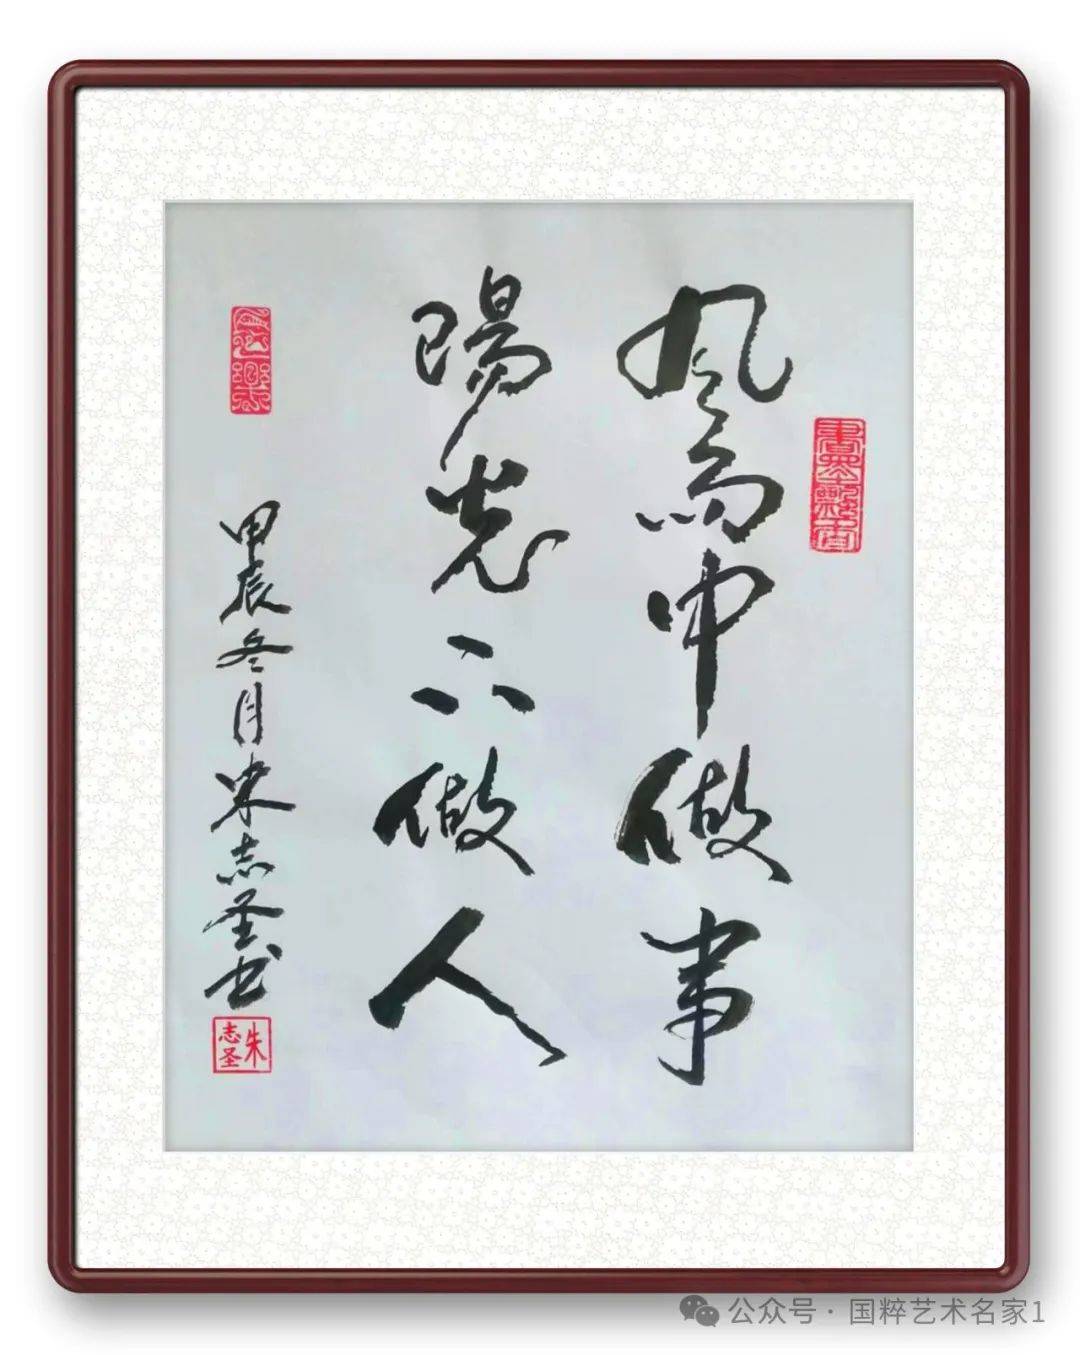 風雨中做事
陽光下做人
甲辰冬月朱志圣书
朱志圣
公众号 · 国粹艺术名家1